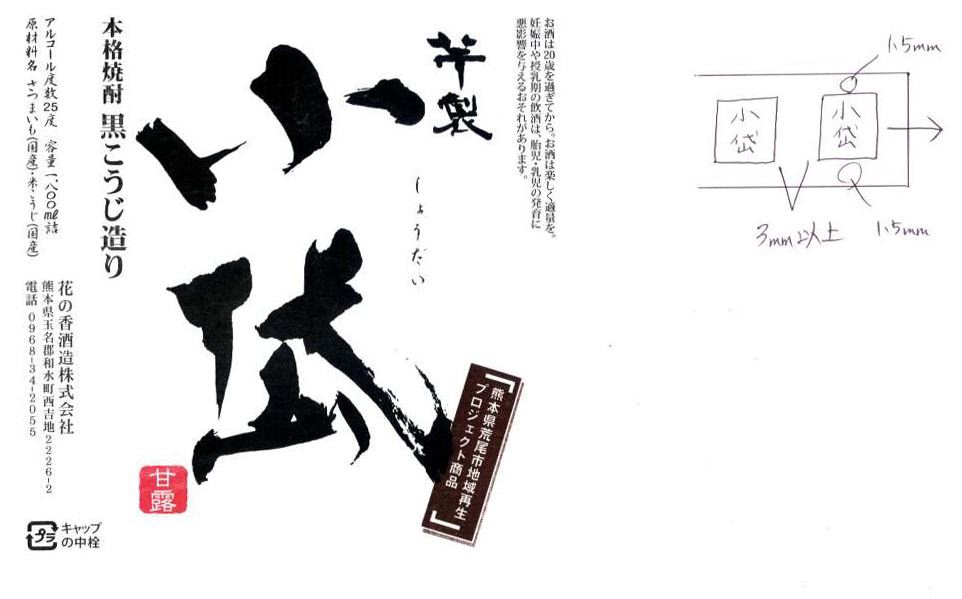 お酒は20歳を過ぎてから。お酒は楽しく適量を。
妊娠中や授乳期の飲酒は、胎児・乳児の発育に
悪影響を与えるおそれがあります。
芋製
小岱
しょうだい
熊本県荒尾市地域再生
プロジェクト商品
甘露
本格焼酎 黒こうじ造り
アルコール度数25度 容量一、八〇〇ml詰
原材料名 さつまいも(国産)・米こうじ(国産)
花の香酒造株式会社
熊本県玉名郡和水町西吉地2226-2
電話 0968-34-2055
プラ
キャップ
の中栓
1.5mm
小岱
小岱
3mm以上
1.5mm